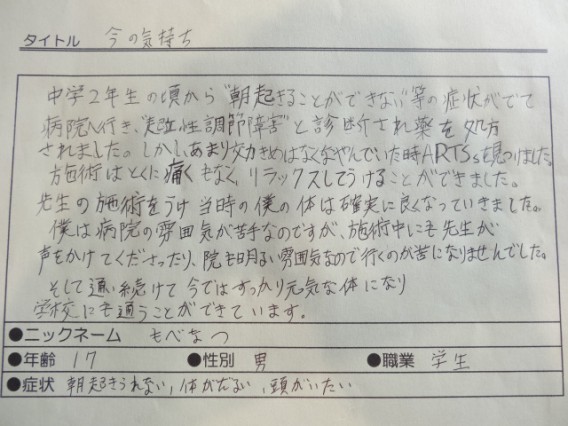 タイトル 今の気持ち
中学2年生の頃から"朝起きることができない"等の症状がでて
病院へ行き、"起立性調節障害"と診断され薬を処方
されました。しかし、あまり効きめはなくなやんでいた時ARTSを見つけました。
施術はとくに痛くもなく、リラックスしてうけることができました。
先生の施術をうけ当時の僕の体は確実に良くなっていきました。
僕は病院の雰囲気が苦手なのですが、施術中にも先生が
声をかけてくださったり、院も明るい雰囲気なので行くのが苦になりませんでした。
そして通い続けて今ではすっかり元気な体になり
学校にも通うことができています。
●ニックネーム もべなつ
●年齢 17 ●性別 男 ●職業 学生
●症状 朝起きられない、体がだるい、頭がいたい